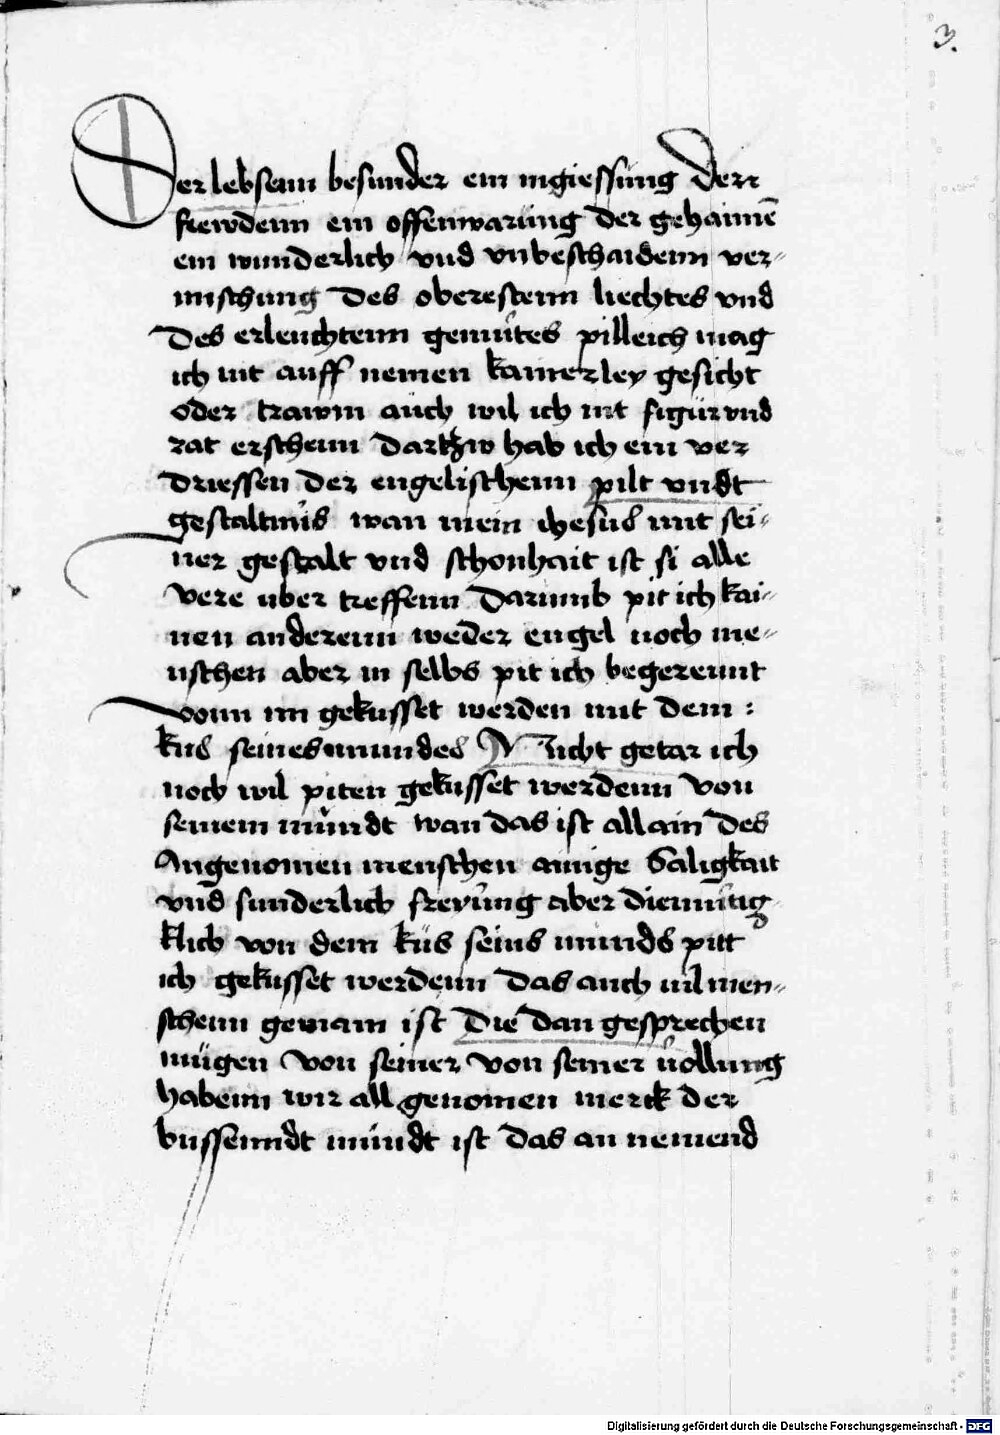 3.
Der lebsam besunder ein ingiessung derr
frewdenn ein offenwarung der gehaimē
ein wunderlich vnd vnbeschaidenn ver-
mischung des oberestenn liechtes vnd
des erleuchtenn gemütes pilleich mag
ich nit auff nemen kainerley gesicht
oder trawm auch wil ich nit figur vnd
rat erscheinn dartzw hab ich ein ver
driessen der engelischenn pilt vndt
gestaltnüs wan mein ihesus mit sei-
ner gestalt vnd schonhait ist si alle
vere uber treffenn darumb pit ich kai-
nen anderenn weder engel noch me-
nschen aber in selbs pit ich begerennt
vonn im gekusset werden mit dem :
kus seines mundes Nicht getar ich
noch wil piten gekusset werdenn von
seinem mundt wan das ist allain des
Angenomen menschen ainige Saligkait
vnd sunderlich freyung aber diemütig
klich von dem küs seins munds pitt
ich gekusset werdenn das auch uil men-
schenn gemain ist Die dan gesprechen
mügen von seiner von seiner uollung
habenn wir all genomen merck der
kussenndt mundt ist das an nemend
Digitalisierung gefördert durch die Deutsche Forschungsgemeinschaft - DFG